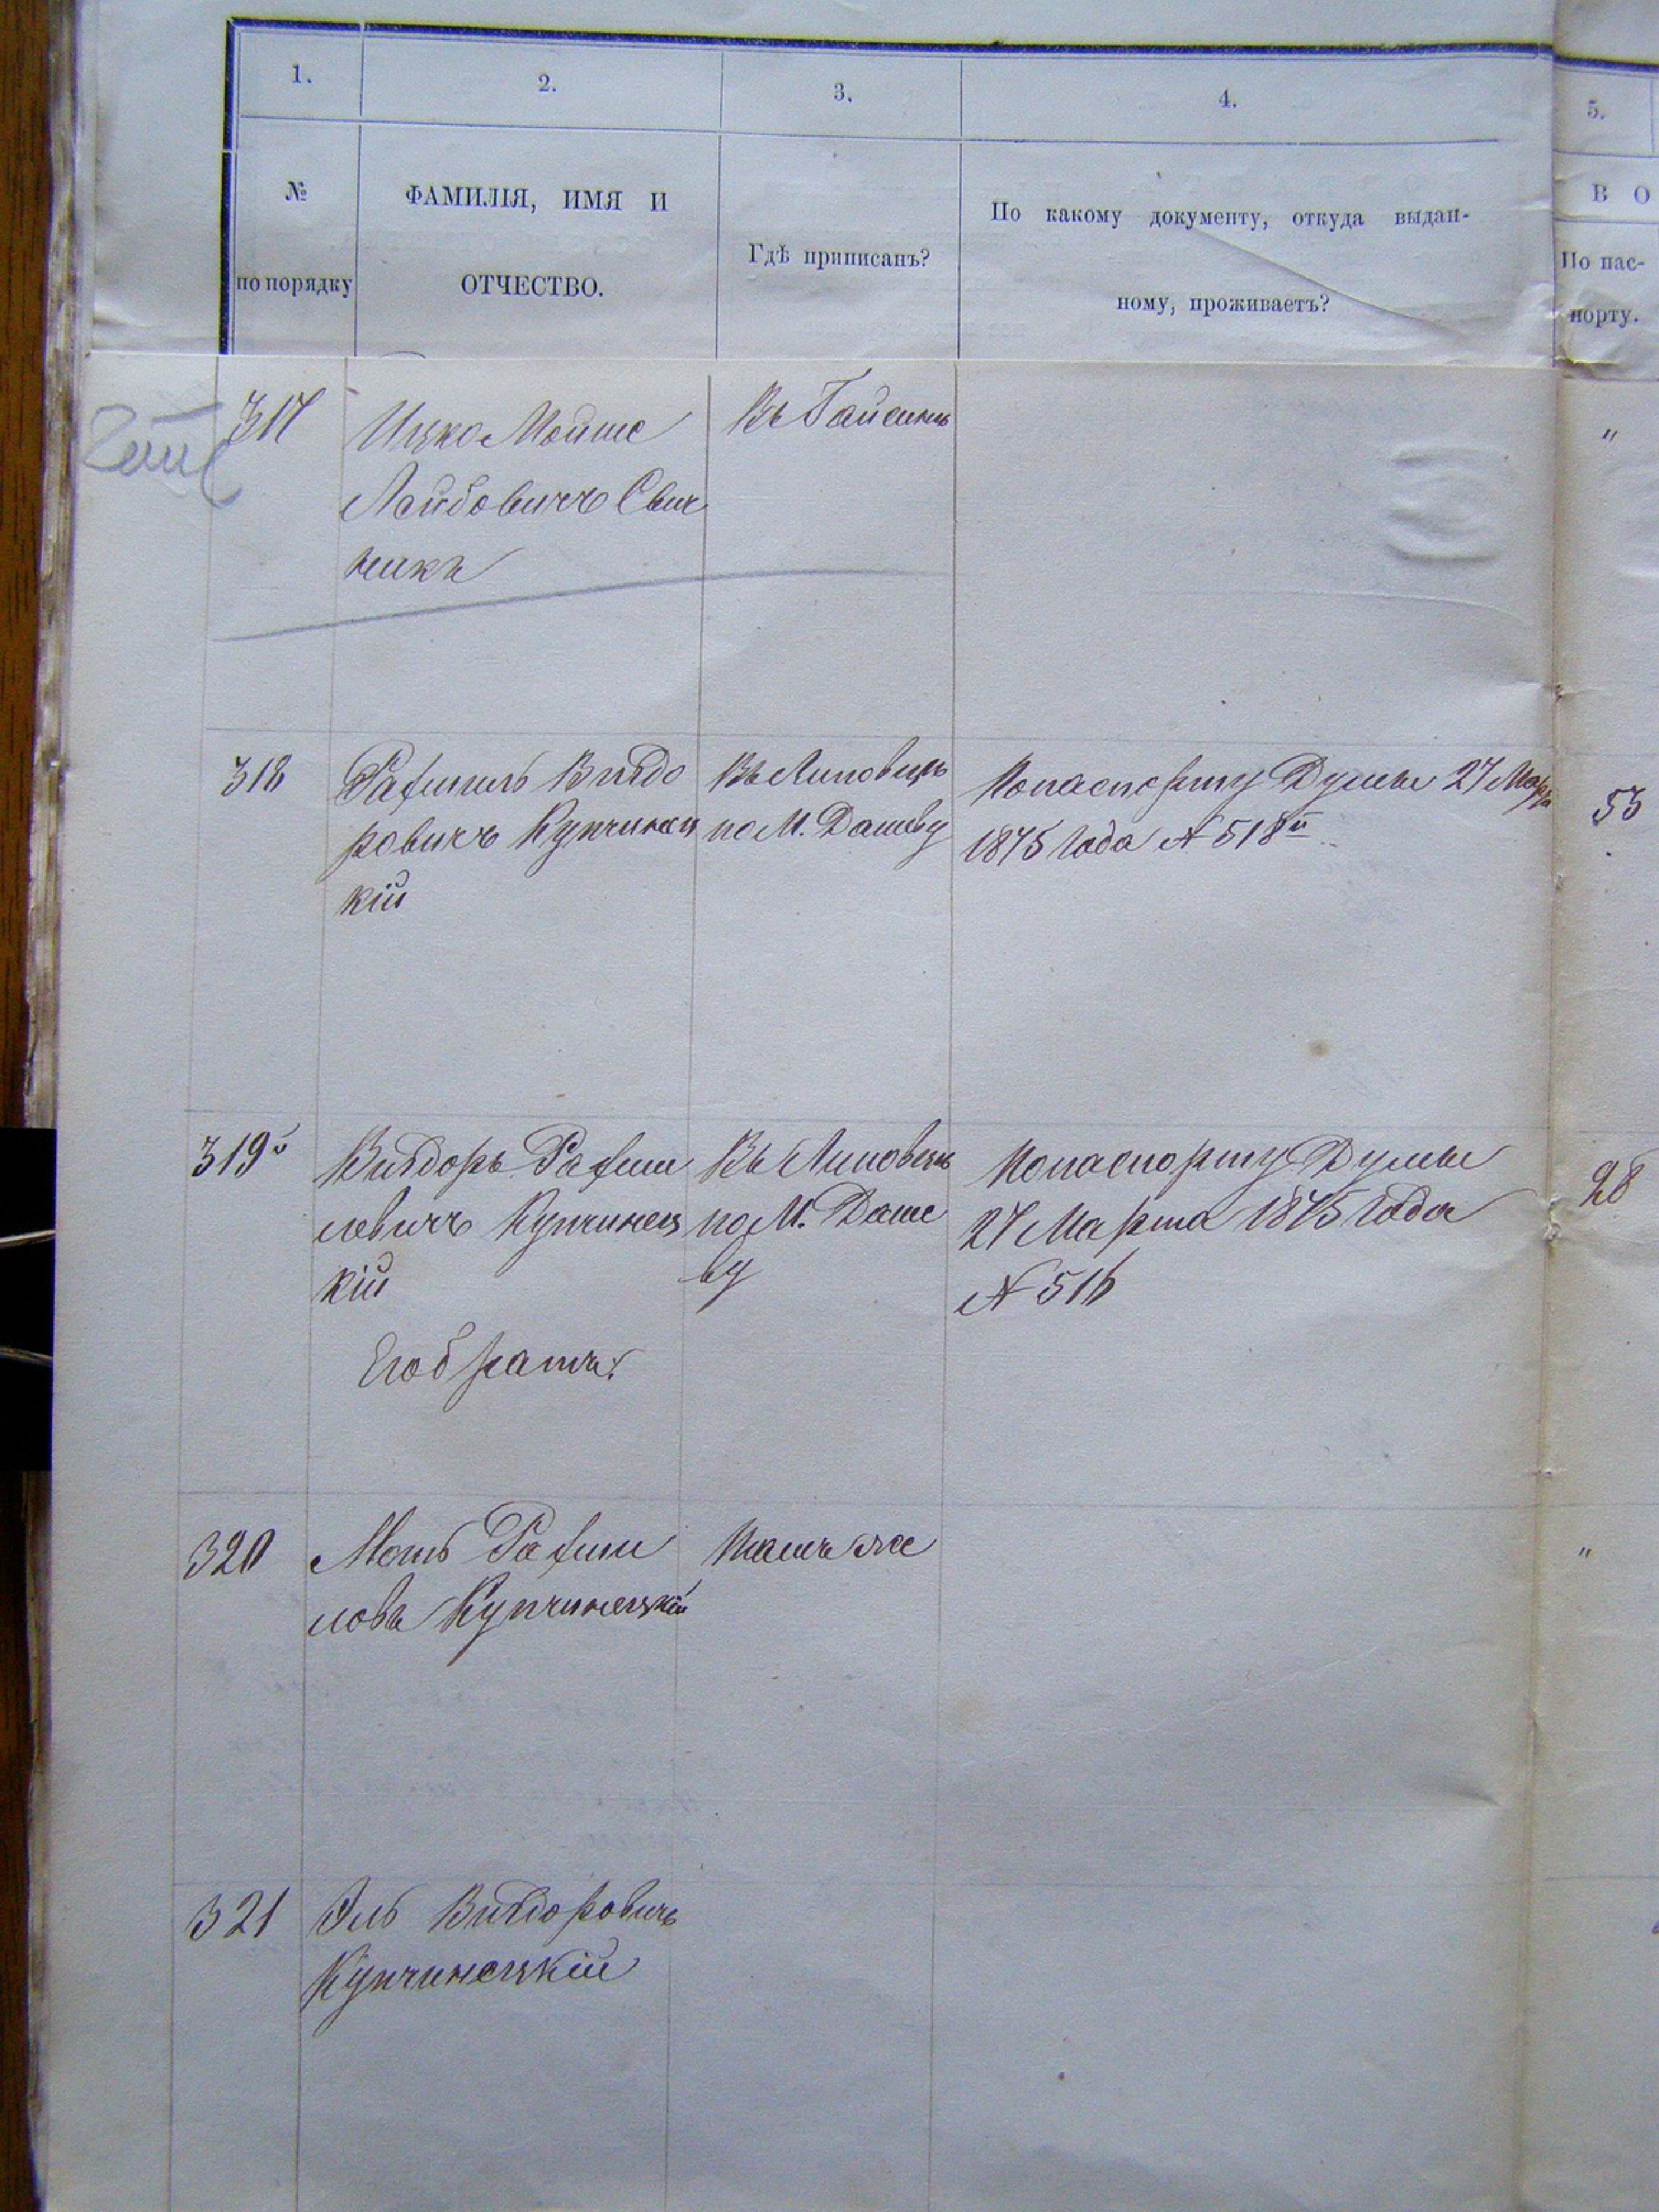 1.
2.
3.
4.
5.
№
по порядку
ФАМИЛІЯ, ИМЯ И
ОТЧЕСТВО.
Гдѣ приписанъ?
По какому документу, откуда выдан-
ному, проживаетъ?
В О
По пас-
порту.
317
Ицко Мойше
Лейбовичъ Свич
никъ
Въ Гайсинѣ
"
318
Рафаиль Вигдо
ровичъ Купчинец
кій
Въ Липовцѣ
по М. Дашеву
По паспорту Думы 27 Марта
1875 года № 518й
53
319й
Вигдоръ Рафаи
левичъ Купчинец
кій
Его братъ
Въ Липовцѣ
по М. Даше
ву
По паспорту Думы
27 Марта 1875 года
№ 516
28
320
Моть Рафаи
ловъ Купчинецкій
Тамъ же
"
321
Эль Вигдоровичъ
Купчинецкій